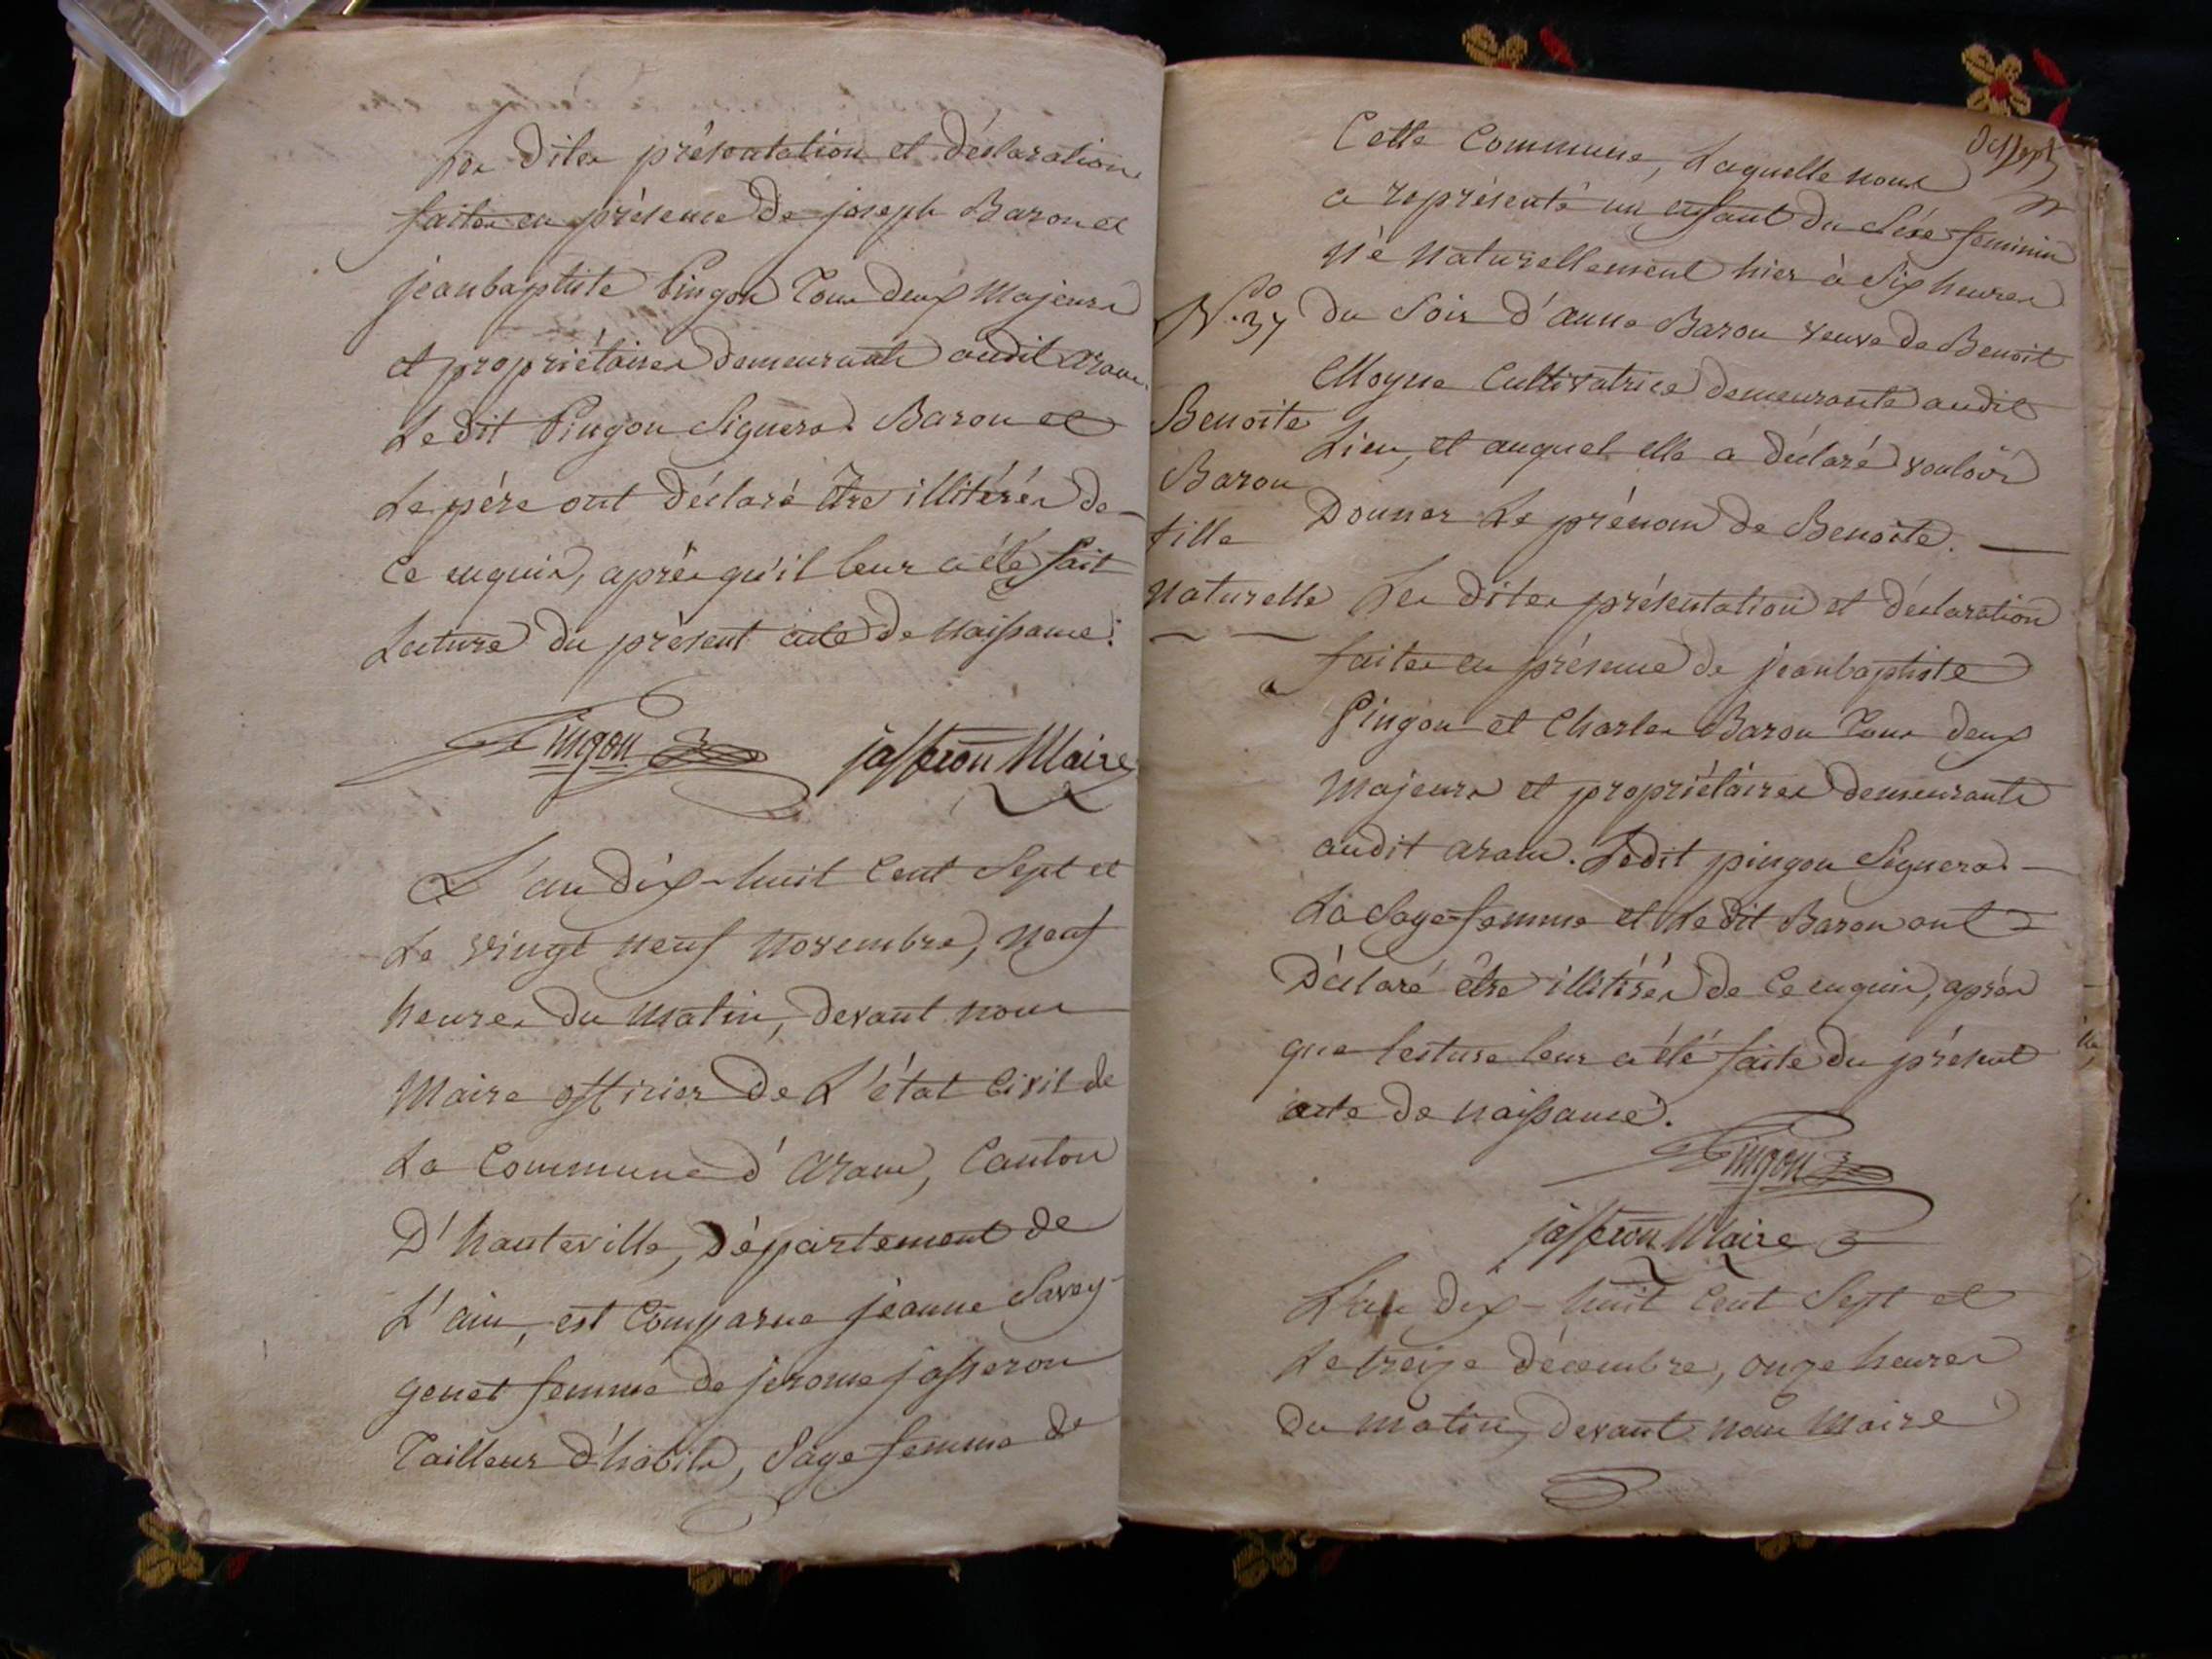 Les dites présentation et déclaration
faites en présence de joseph Baron et
jeanbaptiste Pingon Tous deux Majeurs
et propriétaires demeurants audit aranc.
Le dit Pingon Signera. Baron et
Le pére ont déclaré être illitérés de
ce enquis, après qu'il leur a été fait
Lecture du présent acte de Naissance.
Pingon jasseron Maire
L'an dix-huit cent Sept et
Le vingt neuf Novembre, neuf
heures du Matin, devant nous
Maire officier de L'état civil de
La Commune d'aranc, Canton
D'hauteville, Département de
L'ain, est comparue jeanne Savey
genet femme de jerome jasseron
Tailleur d'habits, Sage femme de
Cette Commune, Laquelle nous
a représenté un enfant du Séxe feminin
Né Naturellement hier à Six heures
N.° 37 du Soir d'anne Baron veuve de Benoit
Moyne Cultivatrice demeurante audit
Benoite
Lieu, et auquel elle a déclaré vouloir
Baron
Donner Le prénom de Benoite.
fille
Naturelle Les dites présentation et déclaration
faites en présence de jeanbaptiste
Pingon et Charles Baron Tous deux
Majeurs et propriétaires demeurants
audit aranc. Ledit pingon Signera.
La Sage-femme et Le dit Baron ont
Déclaré être illitérés de ce enquis, après
que lecture leur a été faite du présent
acte de naissance.
Pingon
jasseron Maire
L'an dix-huit cent Sept et
Le treize décembre, onze heures
du matin, devant nous Maire